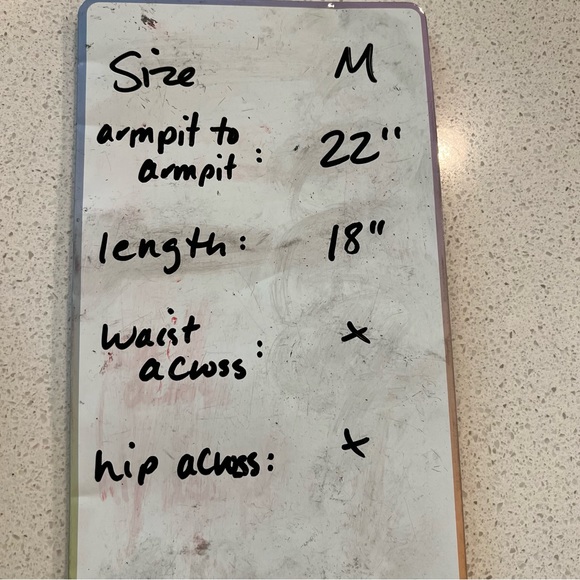 Size M
armpit to
armpit : 22"
length: 18"
waist
across : x
hip across: x